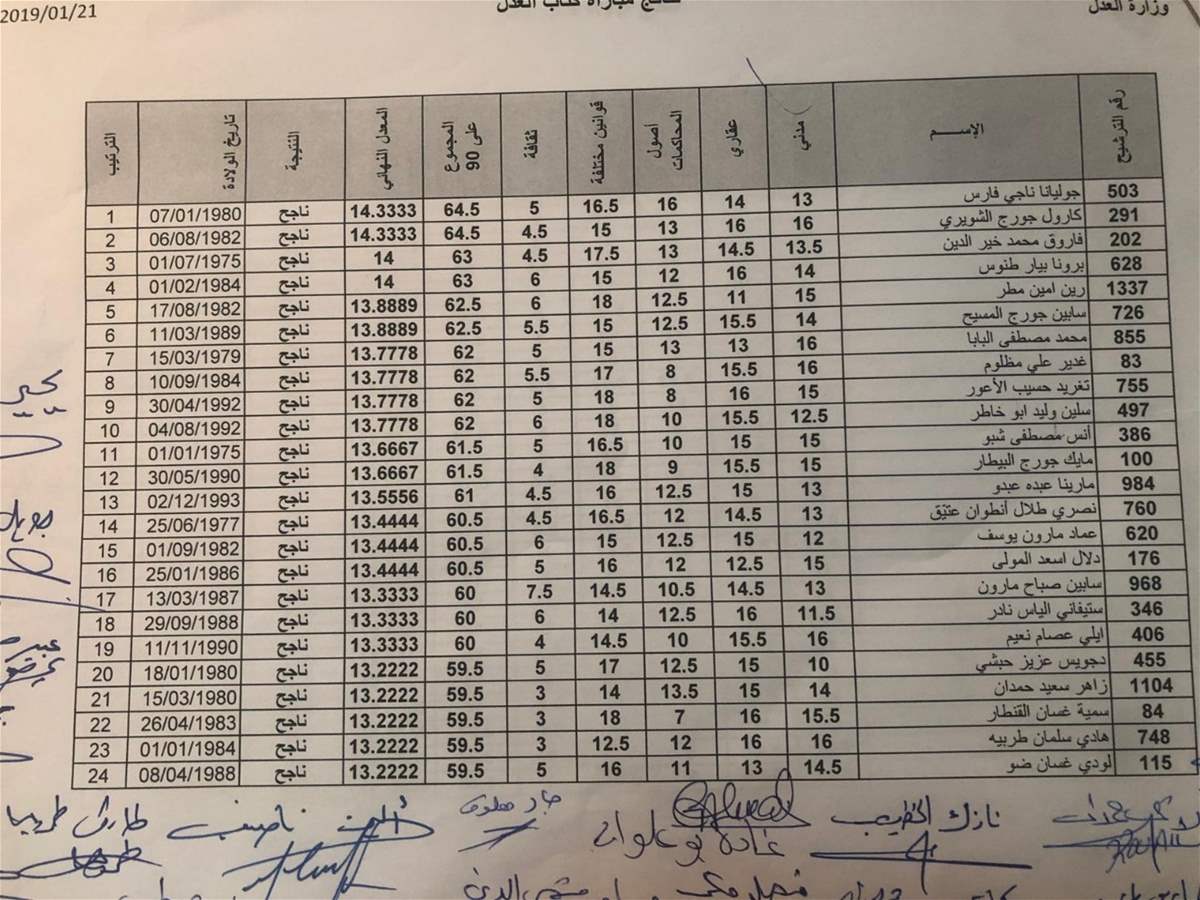 وزارة العدل
نتائج مباراة كتاب العدل
2019/01/21
رقم الترشيح الإسم مدني عقاري أصول المحاكمات قوانين مختلفة ثقافة المجموع على 90 المعدل النهائي النتيجة تاريخ الولادة الترتيب
503 جوليانا ناجي فارس 13 14 16 16.5 5 64.5 14.3333 ناجح 07/01/1980 1
291 كارول جورج الشويري 16 16 13 15 4.5 64.5 14.3333 ناجح 06/08/1982 2
202 فاروق محمد خير الدين 13.5 14.5 13 17.5 4.5 63 14 ناجح 01/07/1975 3
628 برونا بيار طنوس 14 16 12 15 6 63 14 ناجح 01/02/1984 4
1337 رين امين مطر 15 11 12.5 18 6 62.5 13.8889 ناجح 17/08/1982 5
726 سابين جورج المسيح 14 15.5 12.5 15 5.5 62.5 13.8889 ناجح 11/03/1989 6
855 محمد مصطفى البابا 16 13 13 15 5 62 13.7778 ناجح 15/03/1979 7
83 غدير علي مظلوم 16 15.5 8 17 5.5 62 13.7778 ناجح 10/09/1984 8
755 تغريد حسيب الأعور 15 16 8 18 5 62 13.7778 ناجح 30/04/1992 9
497 سلين وليد ابو خاطر 12.5 15.5 10 18 6 62 13.7778 ناجح 04/08/1992 10
386 أنس مصطفى شبو 15 15 10 16.5 5 61.5 13.6667 ناجح 01/01/1975 11
100 مايك جورج البيطار 15 15.5 9 18 4 61.5 13.6667 ناجح 30/05/1990 12
984 مارينا عبده عبدو 13 15 12.5 16 4.5 61 13.5556 ناجح 02/12/1993 13
760 نصري طلال أنطوان عتيّق 13 14.5 12 16.5 4.5 60.5 13.4444 ناجح 25/06/1977 14
620 عماد مارون يوسف 12 15 12.5 15 6 60.5 13.4444 ناجح 01/09/1982 15
176 دلال اسعد المولى 15 12.5 12 16 5 60.5 13.4444 ناجح 25/01/1986 16
968 سابين صباح مارون 13 14.5 10.5 14.5 7.5 60 13.3333 ناجح 13/03/1987 17
346 ستيفاني الياس نادر 11.5 16 12.5 14 6 60 13.3333 ناجح 29/09/1988 18
406 ايلي عصام نعيم 16 15.5 10 14.5 4 60 13.3333 ناجح 11/11/1990 19
455 دجويس عزيز حبشي 10 15 12.5 17 5 59.5 13.2222 ناجح 18/01/1980 20
1104 زاهر سعيد حمدان 14 15 13.5 14 3 59.5 13.2222 ناجح 15/03/1980 21
84 سمية غسان القنطار 15.5 16 7 18 3 59.5 13.2222 ناجح 26/04/1983 22
748 هادي سلمان طربيه 16 16 12 12.5 3 59.5 13.2222 ناجح 01/01/1984 23
115 لودي غسان ضو 14.5 13 11 16 5 59.5 13.2222 ناجح 08/04/1988 24
نازك الخطيب
غادة بو علوان